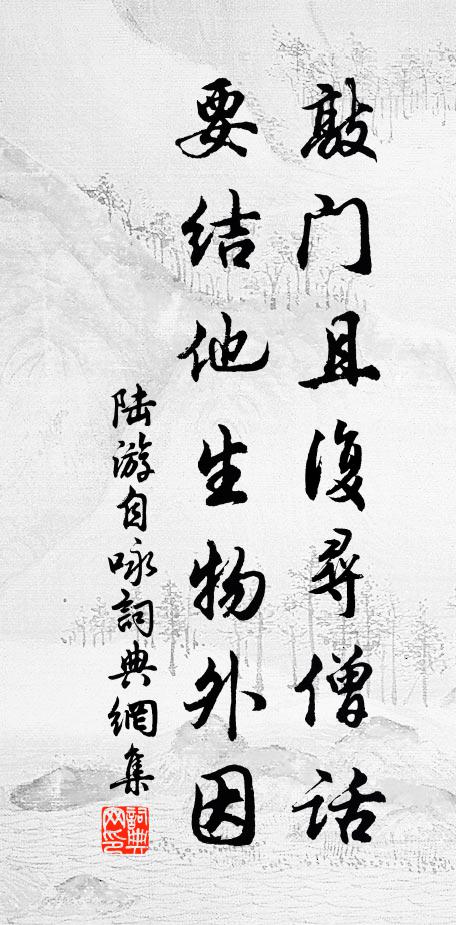 敲门且復尋僧话
要结他生物外因
陆游自咏詞典網集
詞典
网印